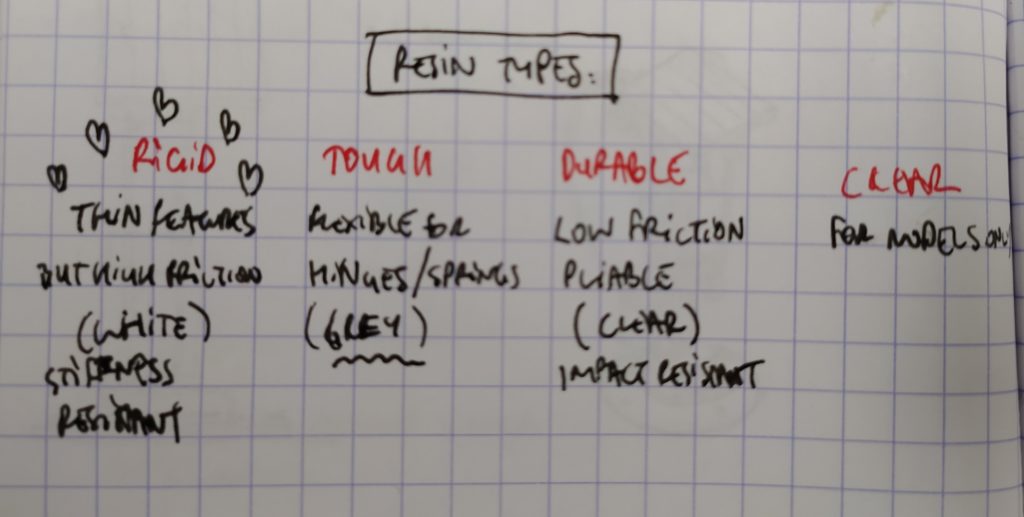 RESIN TYPES:
RIGID
THIN FEATURES
BUT HIGH FRICTION
(WHITE)
STIFFNESS
RESISTANT
TOUGH
FLEXIBLE FOR
HINGES/SPRINGS
(GREY)
DURABLE
LOW FRICTION
PLIABLE
(CLEAR)
IMPACT RESISTANT
CLEAR
FOR MODELS ONLY